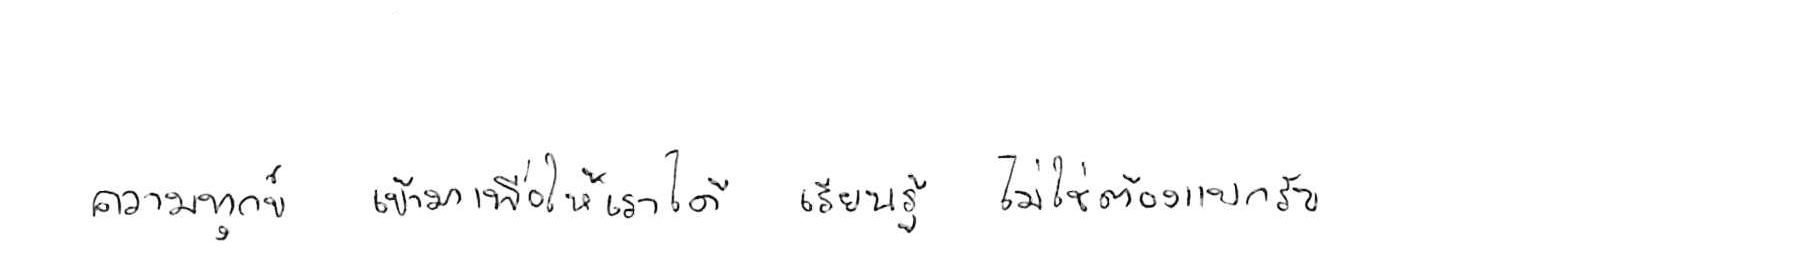 ความทุกข์ เข้ามาเพื่อให้เราได้ เรียนรู้ ไม่ใช่ต้องแบกรับ